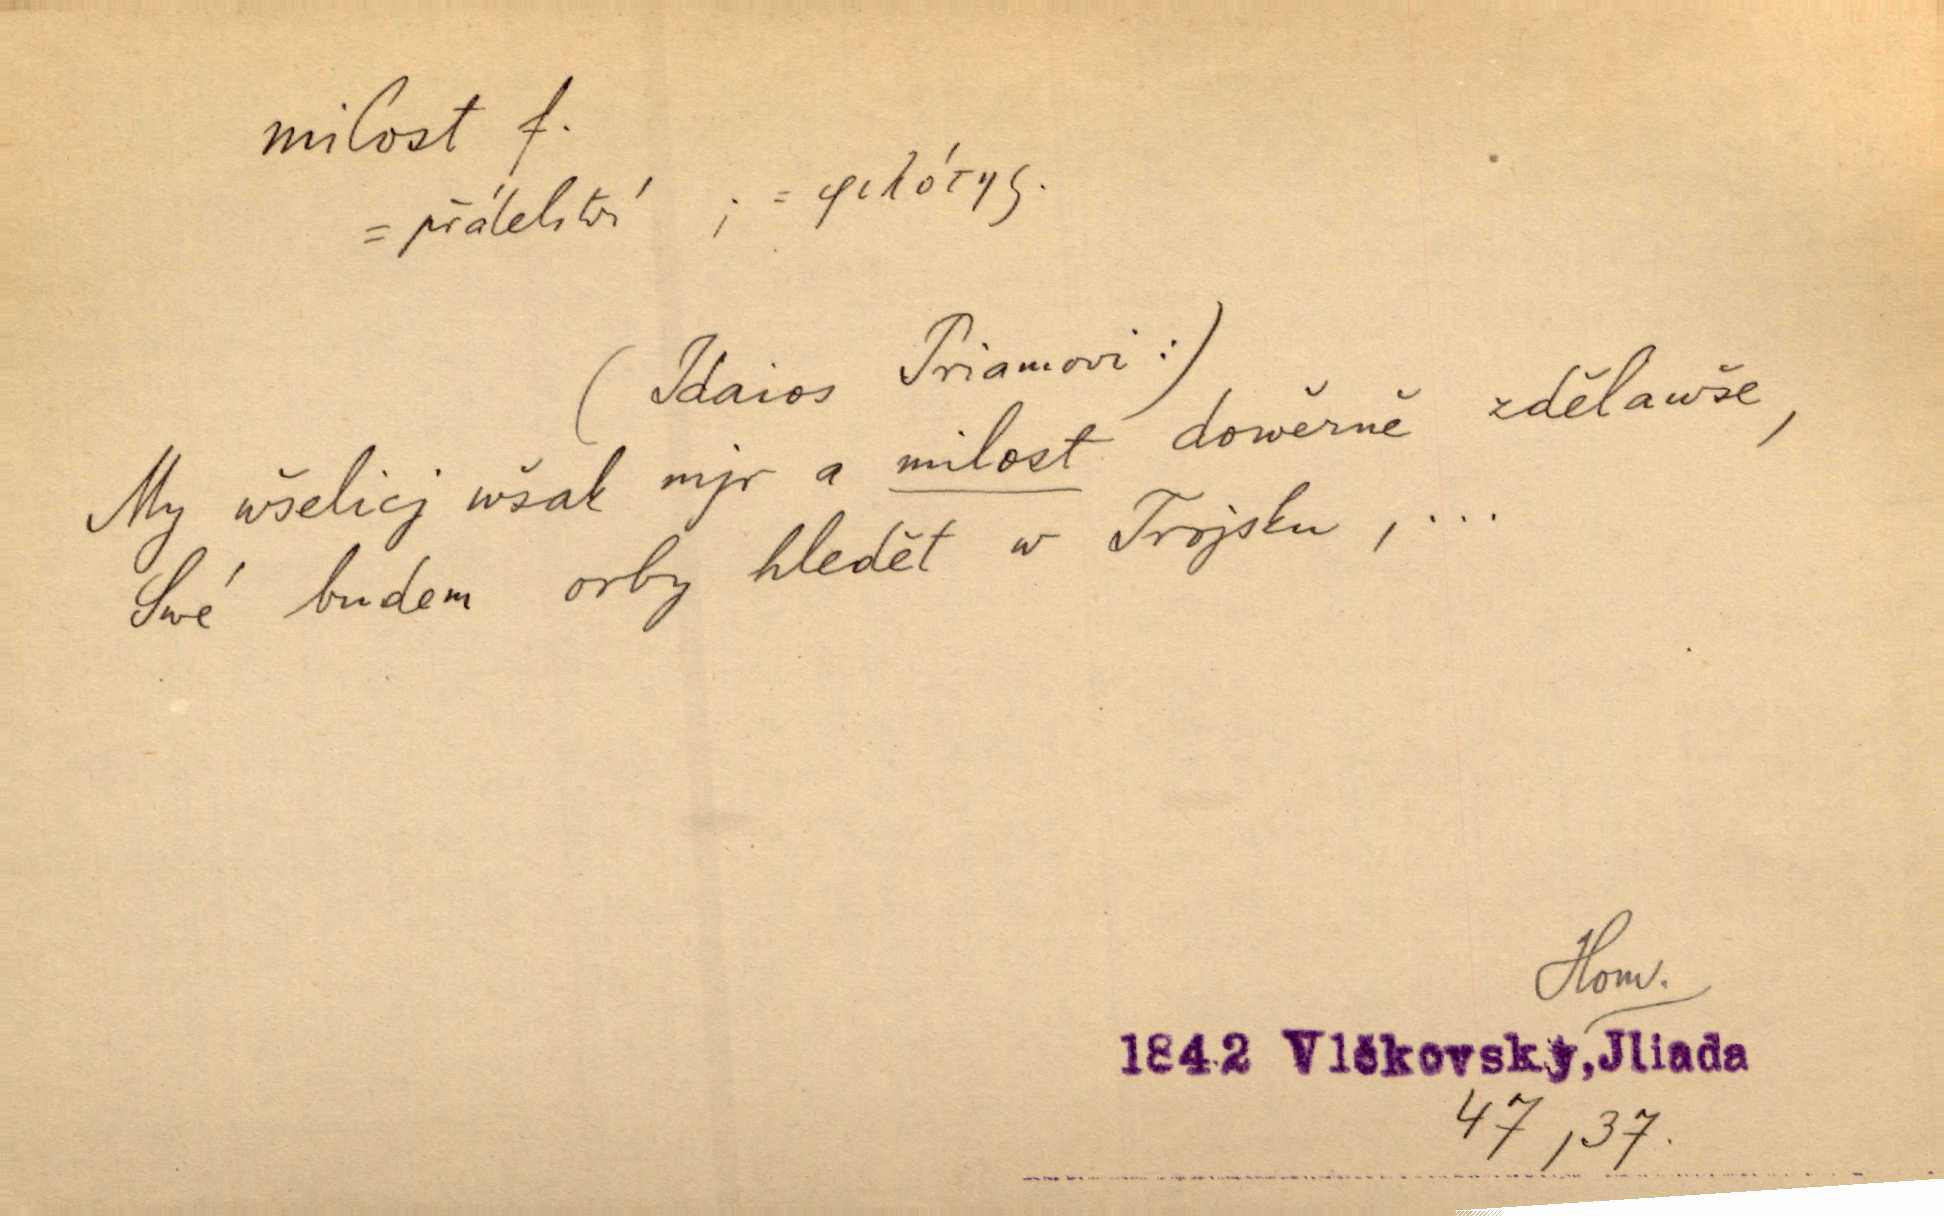 milost f.
= přátelství ; = φιλότης.
(Idaios Priamovi:)
My wšelicj wšak mjr a milost dowěrně zdělawše,
Swé budem orby hledět w Trojsku, ...
Hom.
1842 Vlčkovský, Jliada
47, 37.